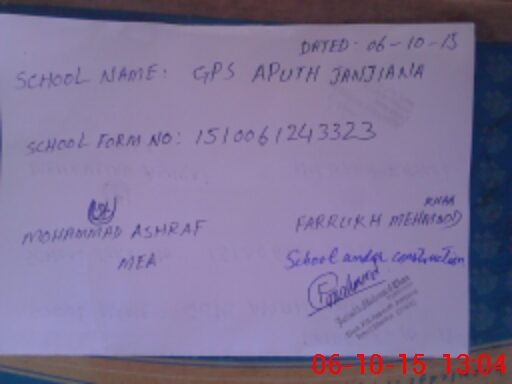 DATED - 06-10-15
SCHOOL NAME: GPS APUTH JANJIANA
SCHOOL FORM NO: 1510061243323
MOHAMMAD ASHRAF
MEA
KHAN
FARRUKH MEHMOOD
School under construction
06-10-15 13:04